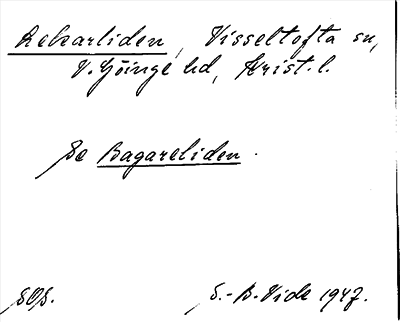 Rekarliden, Visseltofta sn,
V. Göinge hd, Krist. l.
Se Bagareliden.
SOS. S.-B. Vide 1947.